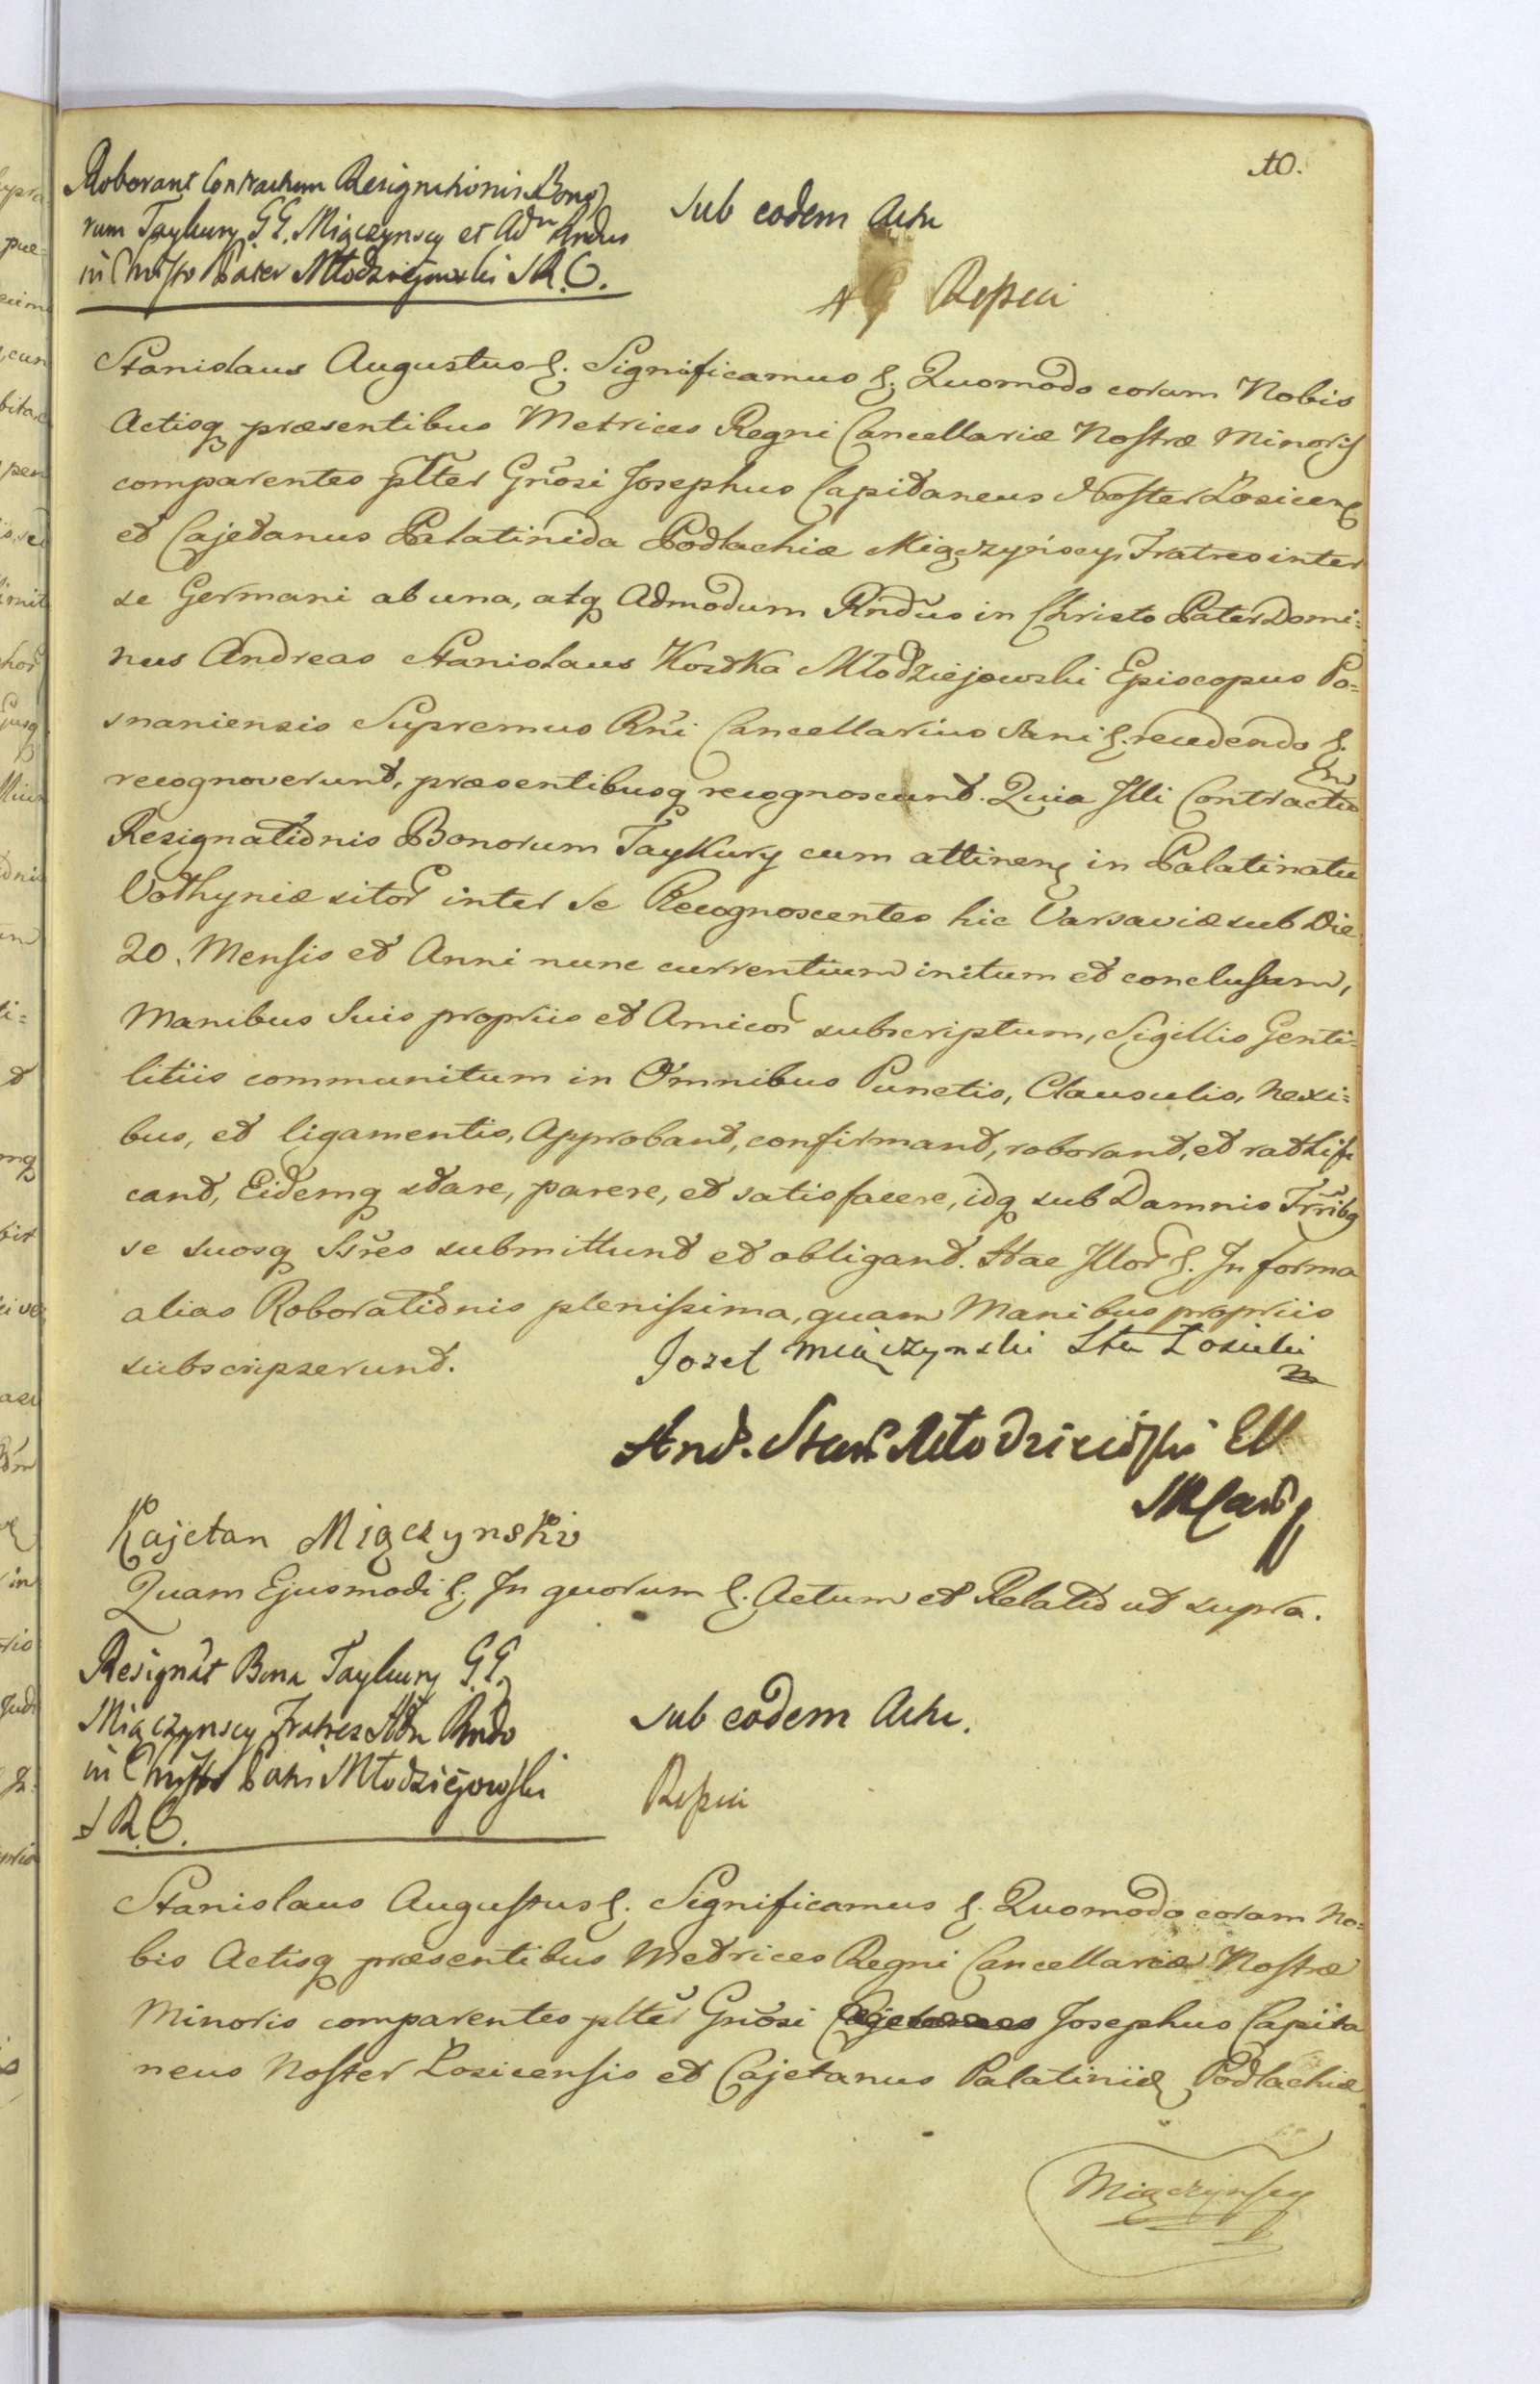 10.
Roborant Contractum Resignationis Bono
rum Taykury G.G. Miączynscy et Adm Rndus
in Christo Pater Młodziejowski S.R.C.
Sub eodem Actu
Stanislaus Augustus &. Significamus &. Quomodo coram Nobis
Actisq præsentibus Metrices Regni Cancellariæ Nostræ Minoris
comparentes pltter Gnosi Josephus Capitaneus Noster Łosicens
et Cajetanus Palatinida Podlachiæ Miączyńscy, Fratres inter
se Germani ab una, atq Admodum Rndus in Christo Pater Domi:
nus Andreas Stanislaus Kostka Młodziejowski Episcopus Po=
snaniensis Supremus Rni Cancellarius Sani &. recedendo &.
recognoverunt, præsentibusq recognoscunt. Quia Illi Contractum
Resignationis Bonorum Taykury cum attinen in Palatinatu
Volhyniæ sitor inter se Recognoscentes hic Varsaviæ sub Die
20. Mensis et Anni nunc currentium initum et conclusum,
Manibus Suis propriis et Amicor subscriptum, Sigillis Genti=
litiis communitum in Omnibus Punctis, Clausulis, Nexi=
bus, et ligamentis, Approbant, confirmant, roborant, et rathifi
cant, Eidemq stare, parere, et satisfacere, idq sub Damnis Trribq
se suosq Ssres submittunt et obligant. Hac Illor &. In forma
alias Roborationis plenissima, quam Manibus propriis
subscripserunt.
Jozef Miączynski Sta Łosicki
And. Stan. Młodzieiowski
Kajetan Miączynski
Quam Ejusmodi &. In quorum &. Actum et Relatio ut supra.
Resignat Bona Taykury G.G.
Miączynscy Fratres Adm Rndo
in Christo Patri Młodziejowski
S.R.C.
Sub eodem Actu.
Stanislaus Augustus &. Significamus &. Quomodo coram No=
bis Actisq præsentibus Metrices Regni Cancellariæ Nostræ
Minoris comparentes pltter Gnosi Josephus Capita
neus Noster Łosicensis et Cajetanus Palatinidæ Podlachiæ
Miączynscy